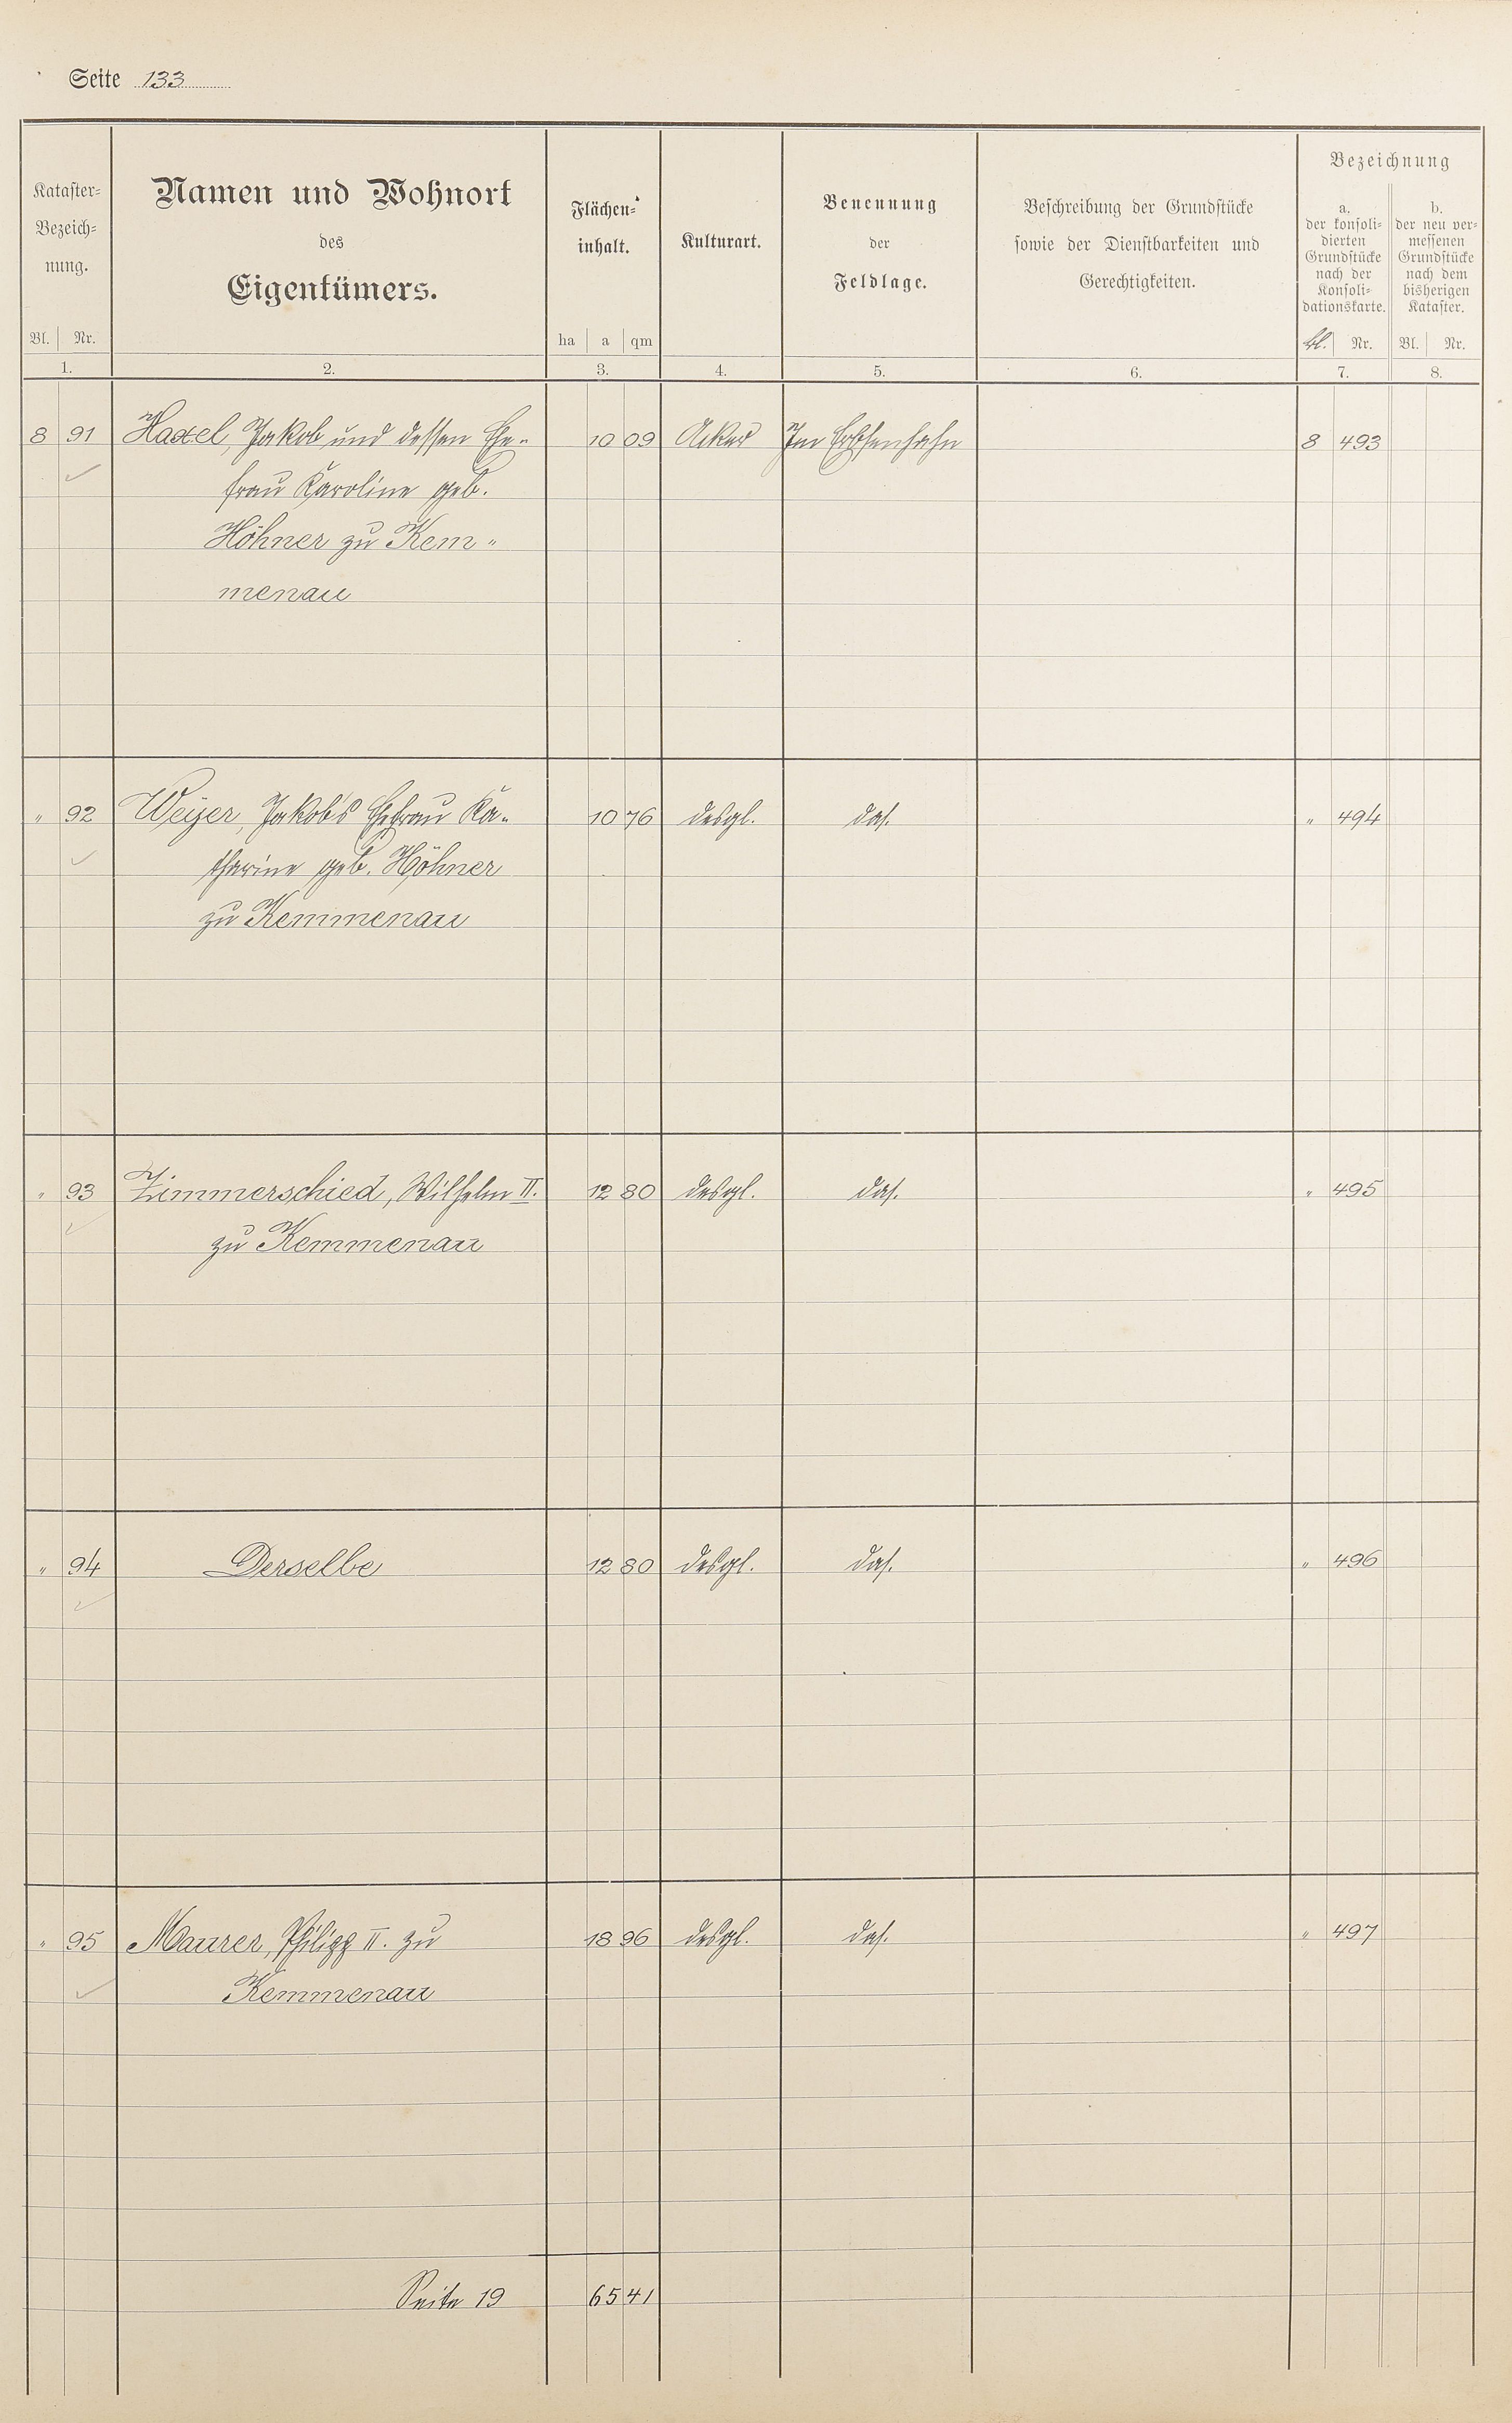 Seite 133
Kataster-
Bezeich-
nung.
Bl. Nr.
1.
Namen und Wohnort
des
Eigentümers.
2.
Flächen-
inhalt.
ha a qm
3.
Kulturart.
4.
Benennung
der
Feldlage.
5.
Beschreibung der Grundstücke
sowie der Dienstbarkeiten und
Gerechtigkeiten.
6.
Bezeichnung
a.
der konsoli-
dierten
Grundstücke
nach der
Konsoli-
dationskarte.
Bl. Nr.
7.
b.
der neu ver-
messenen
Grundstücke
nach dem
bisherigen
Kataster.
Bl. Nr.
8.
8 91 Haxel, Jakob und dessen Ehe- 10 09 Acker Im Erbsenhahn 8 493
frau Karoline geb.
Höhner zu Kem-
menau
" 92 Weyer, Jakob's Ehefrau Ka- 10 76 desgl. das. " 494
tharine geb. Höhner
zu Kemmenau
" 93 Zimmerschied, Wilhelm II. 12 80 desgl. das. " 495
zu Kemmenau
" 94 Derselbe 12 80 desgl. das. " 496
" 95 Maurer, Philipp II. zu 18 96 desgl. das. " 497
Kemmenau
Seite 19 65 41